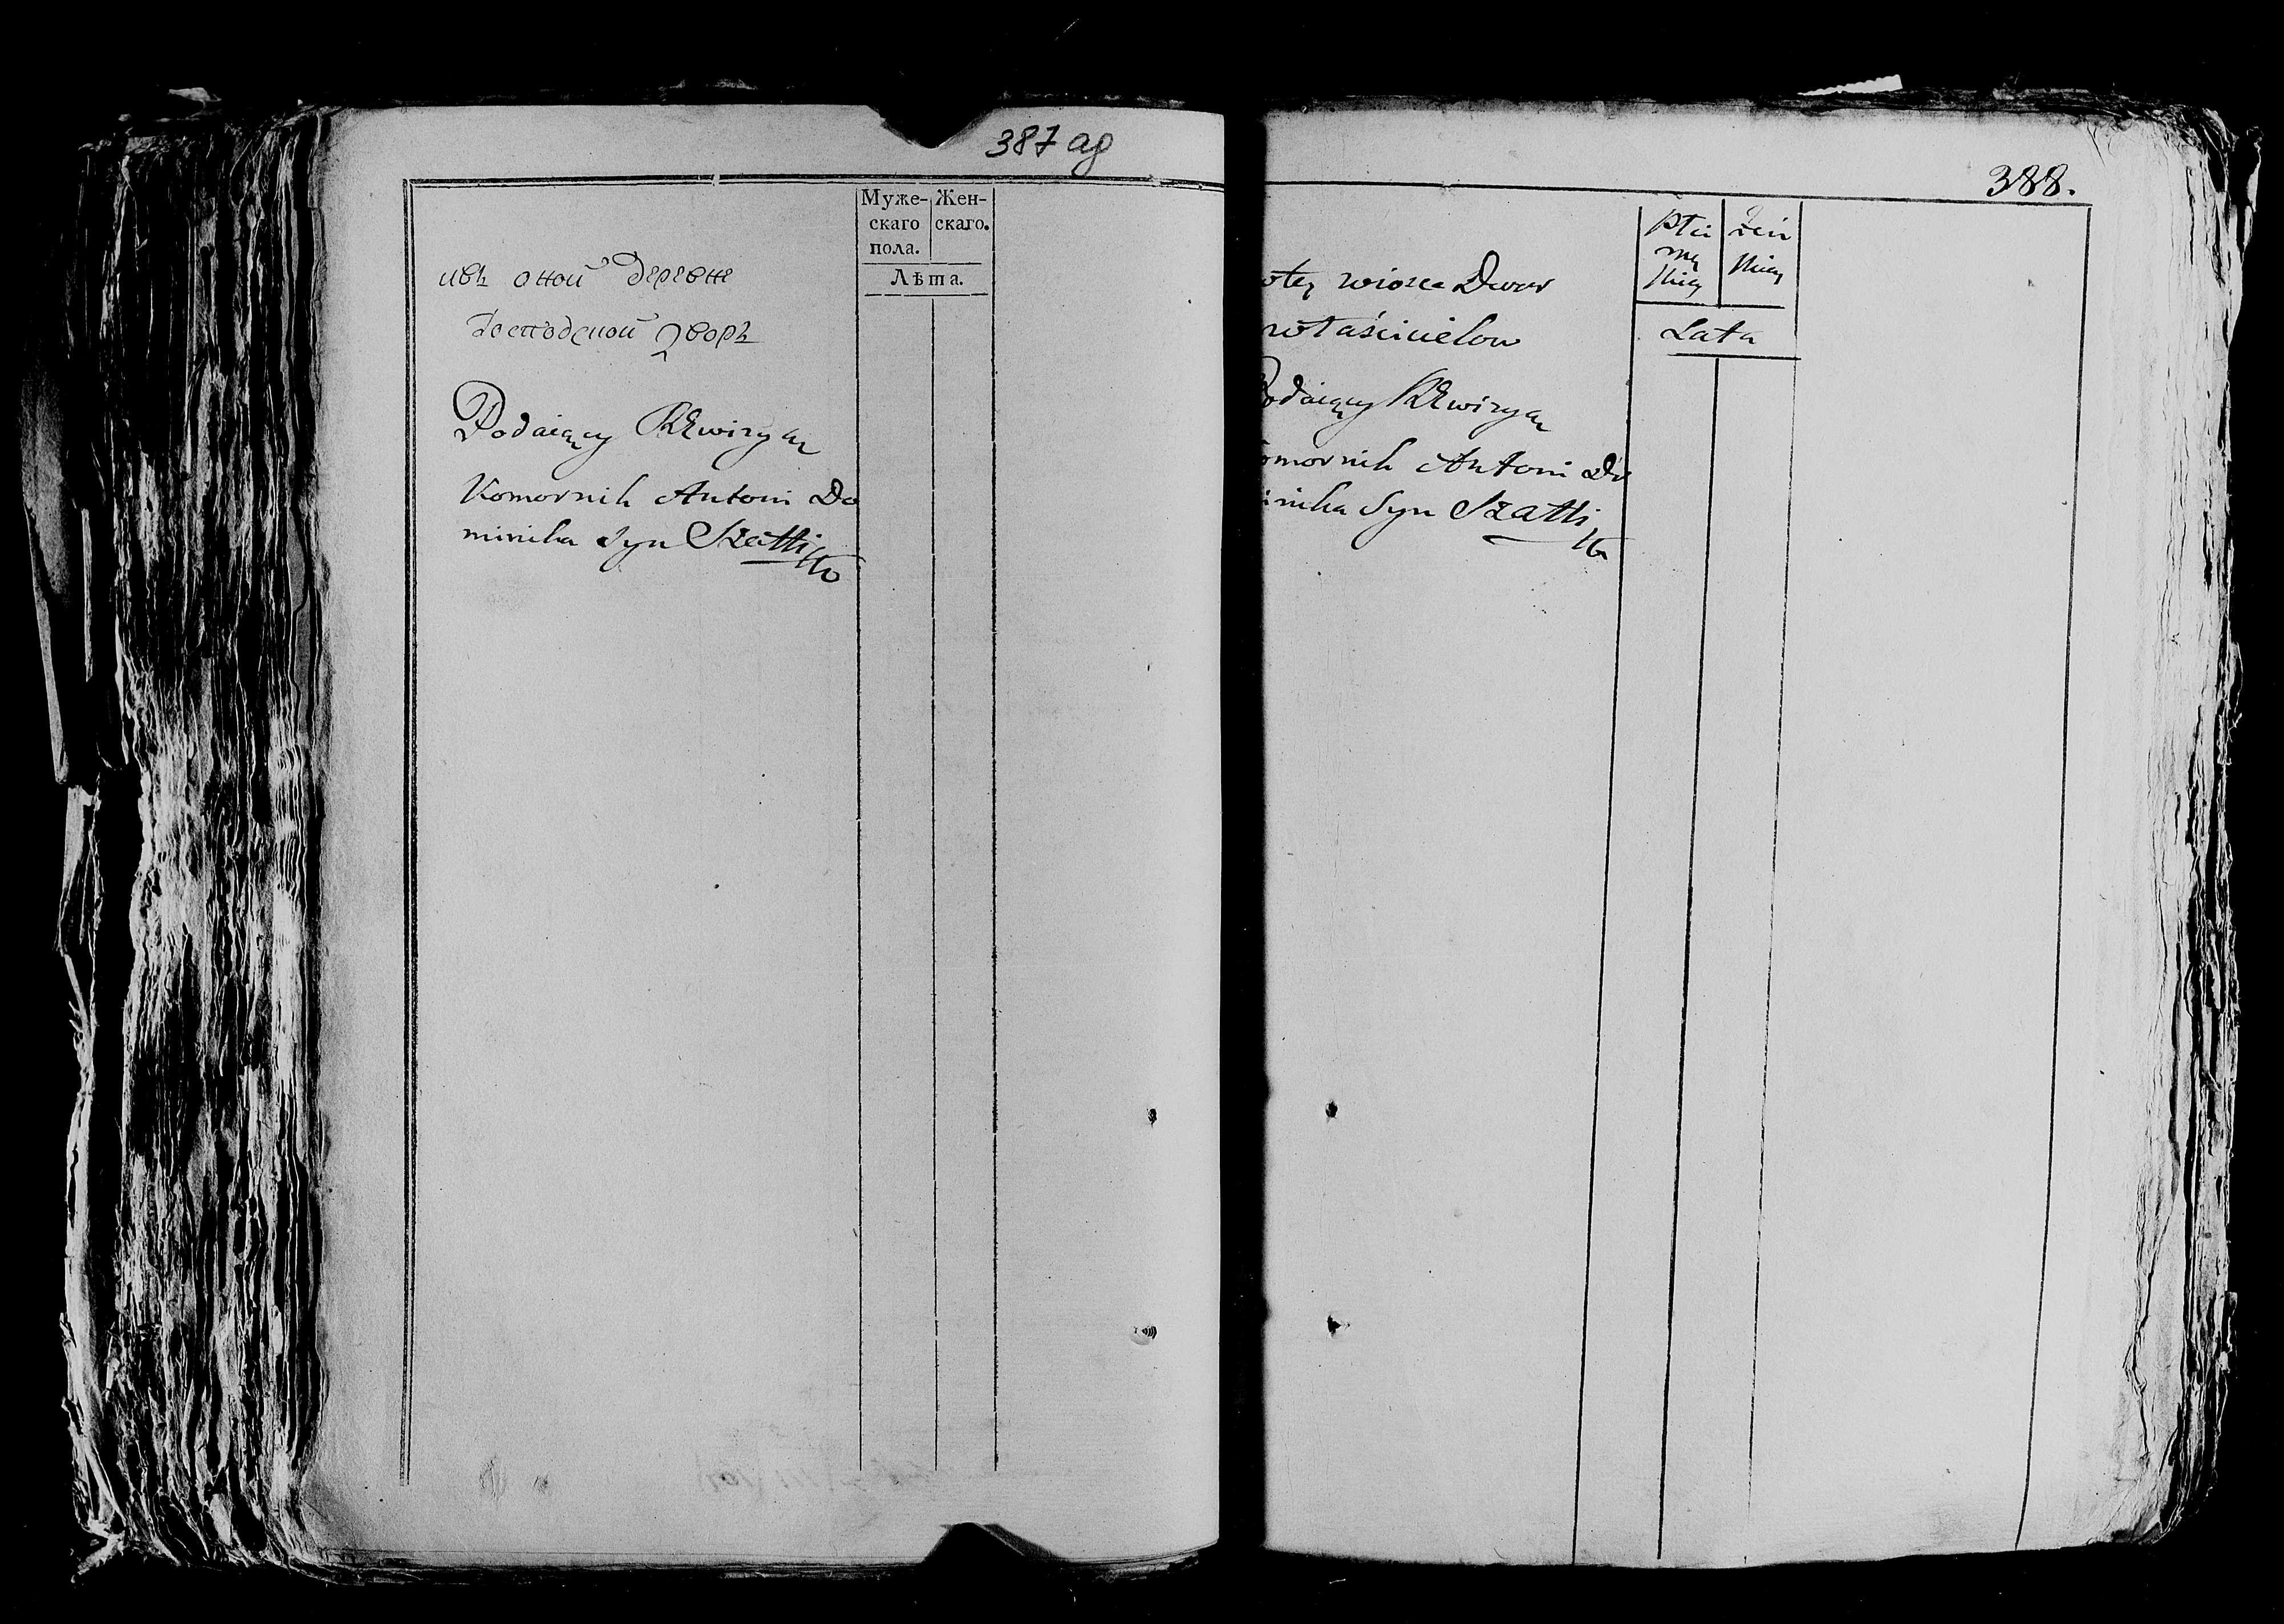 387 ag
Муже-
скаго
пола.
Жен-
скаго.
Лѣта.
ивъ оной деревне
Господской Дворъ
Podaiący REwizyą
Komornik Antoni Do
minika Syn Szatti
388.
Płci
mę
skiey
żeń
skiey
Lata
wtey wiosce Dwor
właścicielow
Podaiący REwizyą
Komornik Antoni Do
minika Syn Szatti